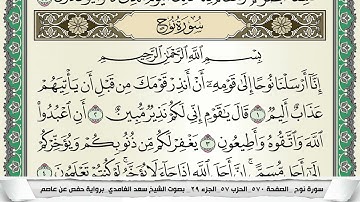 سُورَةُ نُوحٍ
بِسْمِ اللَّهِ الرَّحْمَٰنِ الرَّحِيمِ
إِنَّا أَرْسَلْنَا نُوحًا إِلَىٰ قَوْمِهِ أَنْ أَنذِرْ قَوْمَكَ مِن قَبْلِ أَن يَأْتِيَهُمْ
عَذَابٌ أَلِيمٌ ١ قَالَ يَا قَوْمِ إِنِّي لَكُمْ نَذِيرٌ مُّبِينٌ ٢ أَنِ اعْبُدُوا
اللَّهَ وَاتَّقُوهُ وَأَطِيعُونِ ٣ يَغْفِرْ لَكُم مِّن ذُنُوبِكُمْ وَيُؤَخِّرْكُمْ
إِلَىٰ أَجَلٍ مُّسَمًّى إِنَّ أَجَلَ اللَّهِ إِذَا جَاءَ لَا يُؤَخَّرُ لَوْ كُنتُمْ تَعْلَمُونَ ٤
سورة نوح _ الصفحة ٥٧٠ _ الحزب ٥٧ _ الجزء ٢٩ _ بصوت الشيخ سعد الغامدي _ برواية حفص عن عاصم